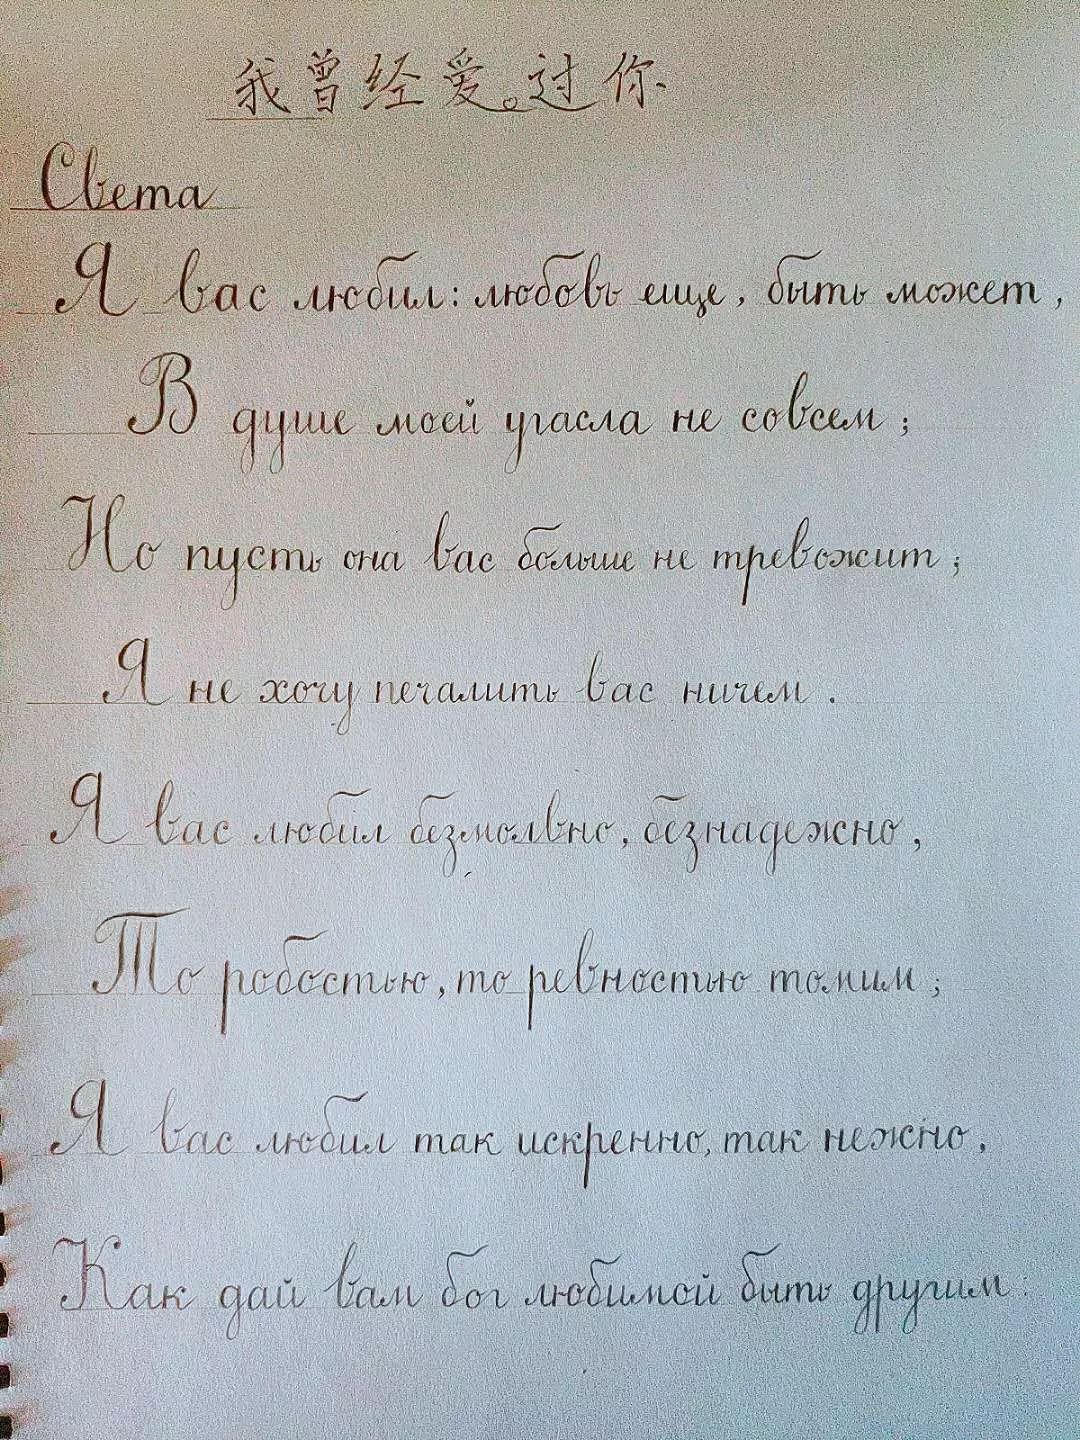 我曾经爱。过你.
Света
Я вас любил: любовь еще, быть может,
В душе моей угасла не совсем;
Но пусть она вас больше не тревожит;
Я не хочу печалить вас ничем.
Я вас любил безмолвно, безнадежно,
То робостью, то ревностью томим;
Я вас любил так искренно, так нежно,
Как дай вам бог любимой быть другим.